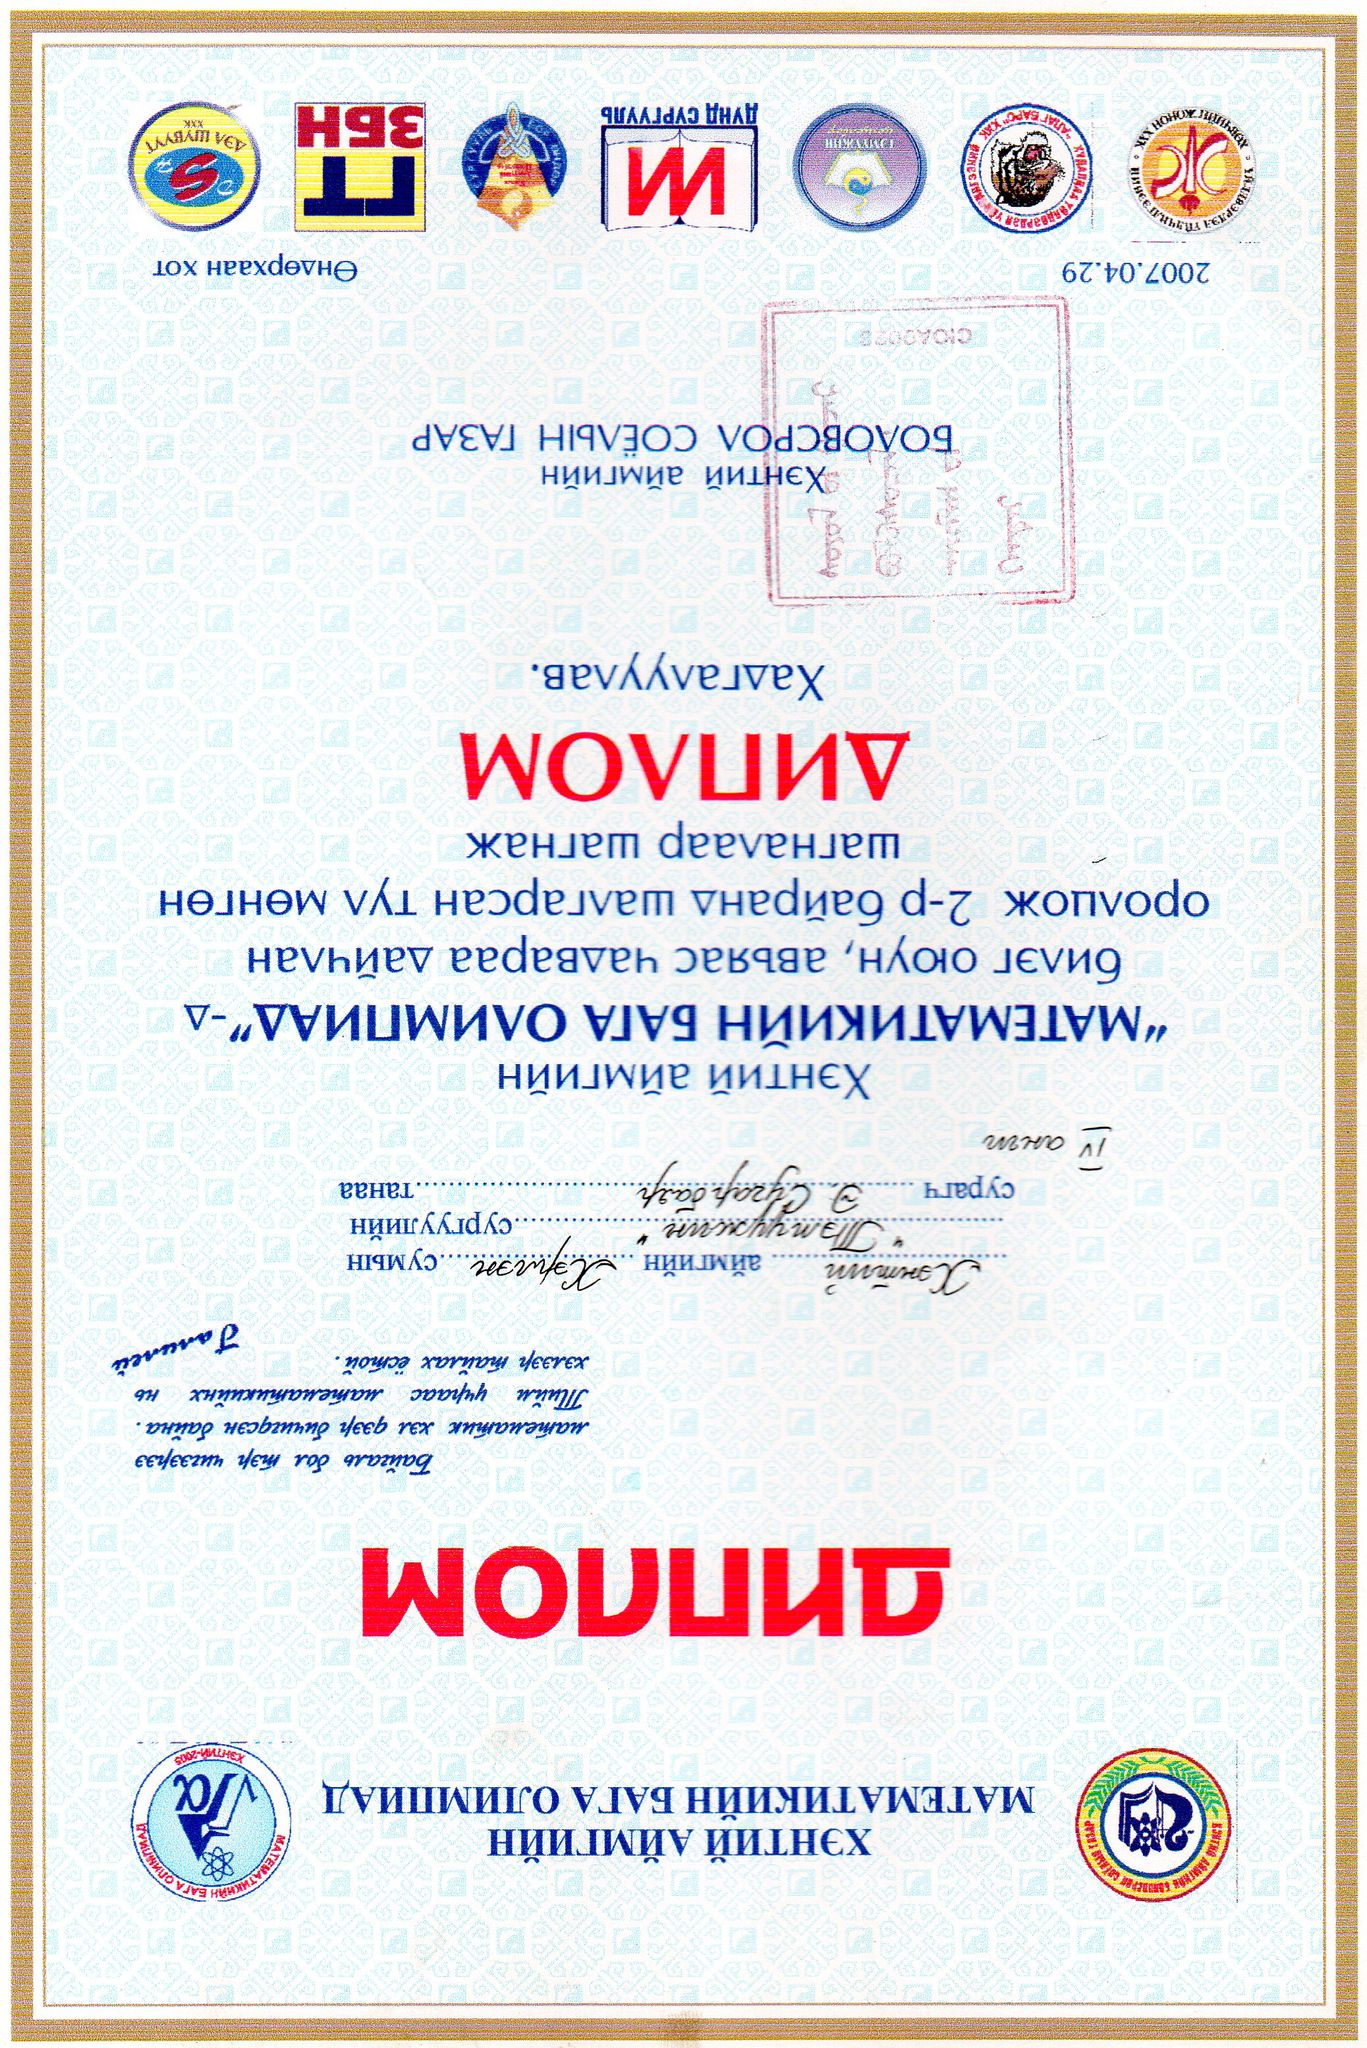 ХЭНТИЙ АЙМГИЙН БОЛОВСРОЛ СОЁЛЫН ГАЗАР
ХЭНТИЙ АЙМГИЙН
МАТЕМАТИКИЙН БАГА ОЛИМПИАД
МАТЕМАТИКИЙН БАГА ОЛИМПИАД
ХЭНТИЙ-2005
ДИПЛОМ
Байгаль бол тэр чигээрээ
математик хэл дээр бичигдсэн байна.
Тийм учраас математикийнх нь
хэлээр тайлах ёстой.
Галилей
Хэнтий аймгийн Хэрлэн сумын
"Тэмүүжин" сургуулийн
сурагч Э. Сугарбаяр танаа
IV анги
Хэнтий аймгийн
“МАТЕМАТИКИЙН БАГА ОЛИМПИАД”-д
билэг оюун, авъяас чадвараа дайчлан
оролцож 2-р байранд шалгарсан тул мөнгөн
шагналаар шагнаж
ДИПЛОМ
Хадгалуулав.
Хэнтий аймгийн
БОЛОВСРОЛ СОЁЛЫН ГАЗАР
2007.04.29
Өндөрхаан хот
ҮЙЛДВЭРЛЭЛ ҮЙЛЧИЛГЭЭНИЙ
ЖОНОН ХХК
ХУДАЛДАА ҮЙЛДВЭРЛЭЛ
"АЛАГ БАРС" ХХК
ТЭМҮҮЖИН
ДУНД СУРГУУЛЬ
ГТ
ЗБН
ДЭЛ ШУВУУТ
ХХК